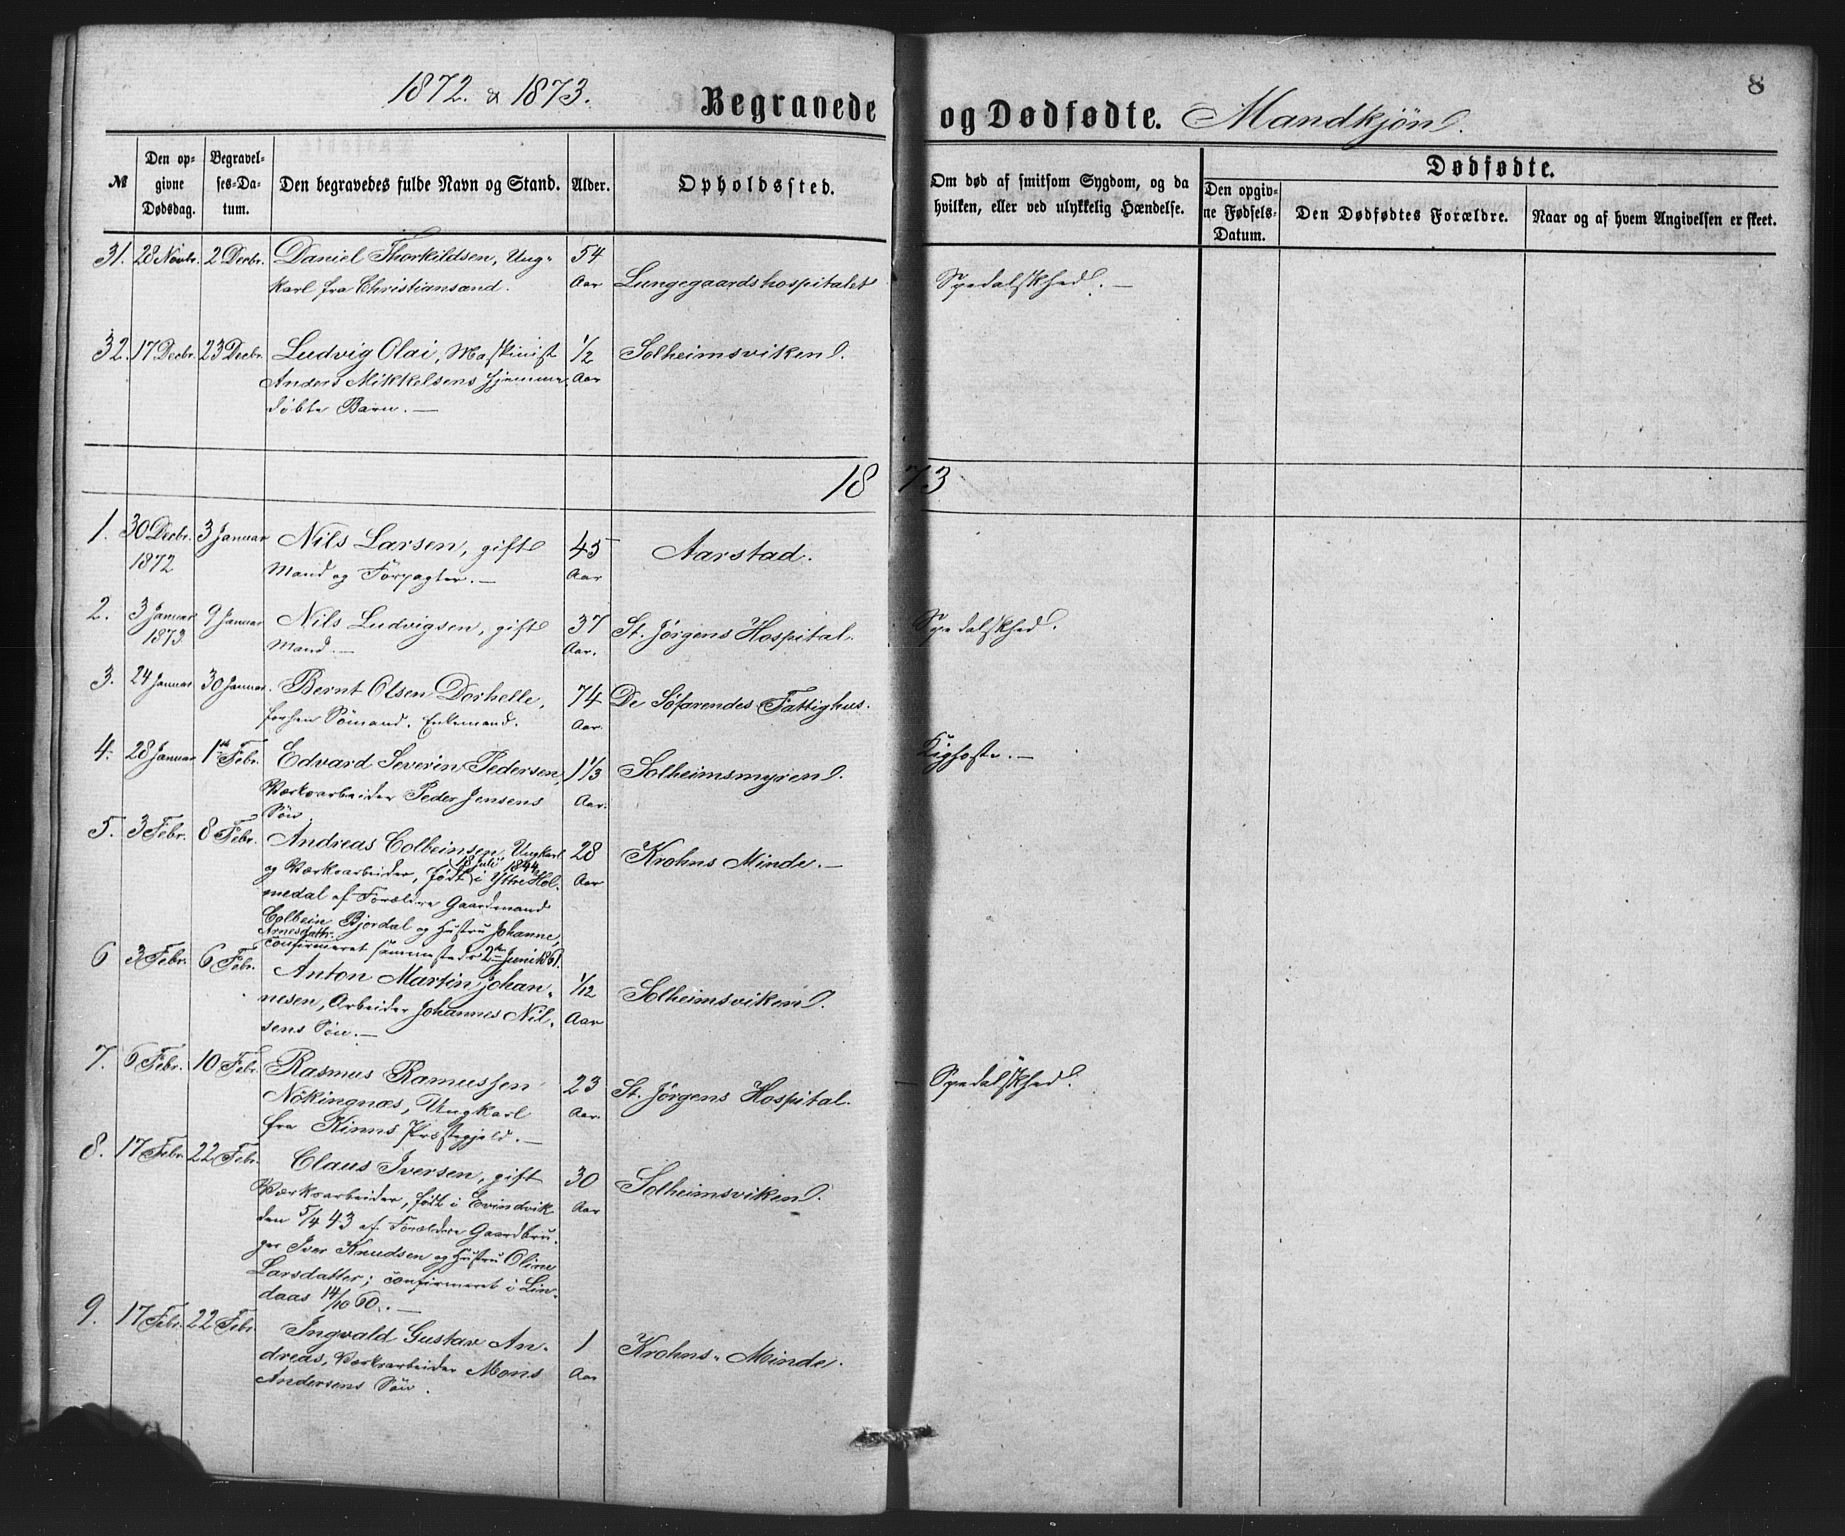 1872. & 1873.
Begravede og Dødfødte. Mandkjøn.
8
№
Den opgivne Dødsdag.
Begravelses-Datum.
Den begravedes fulde Navn og Stand.
Alder.
Opholdssted.
Om død af smitsom Sygdom, og da hvilken, eller ved ulykkelig Hændelse.
Dødfødte.
Den opgivne Fødsels-Datum.
Den Dødfødtes Forældre.
Naar og af hvem Angivelsen er skeet.
31. 28 Novbr. 2 Decbr. Daniel Thorkildsen, Ung- 54
karl fra Christiansand. Aar Lungegaardshospitalet Spedalskhed.
32. 17 Decbr. 23 Decbr. Ludvig Olai, Maskinist 1/2 Solheimsviken.
Anders Mikkelsens hjemme Aar
døbte Barn.
1873
1. 30 Decbr. 3 Januar Nils Larsen, gift 45 Aarstad.
1872 Mand og Forpagter. Aar
2. 3 Januar 9 Januar Nils Ludvigsen, gift 37 St. Jørgens Hospital. Spedalskhed.
1873 Mand. Aar.
3. 24 Januar 30 Januar. Bernt Olsen Dorhelle, 74 De Søfarendes Fattighus.
forhen Sømand. Enkemand. Aar.
4. 28 Januar 1ste Febr. Edvard Severin Pedersen, 1 1/3 Solheimsmyren. Kighoste.
Værksarbeider Peder Jensens Aar.
Søn.
5. 3 Febr. 8 Febr. Andreas Colbeinsen, Ungkarl 28 Krohns Minde.
og Værksarbeider, født 18 Juli 1844 i Yttre Hol- Aar
medal af Forældre Gaardmand
Colbein Bjordal og Hustru Johanne
Arnesdattr. confirmeret sammesteds 2den Juni 1861.
6 3 Febr. 6 Febr. Anton Martin Johan- 1/12 Solheimsviken.
nesen, Arbeider Johannes Nil- Aar
sens Søn.
7. 6 Febr. 10 Febr. Rasmus Ramussen 23 St. Jørgens Hospital. Spedalskhed.
Nökingnæs, Ungkarl Aar.
fra Kinns Præstegjeld.
8. 17 Febr. 22 Febr. Claus Iversen, gift 30 Solheimsviken.
Værksarbeider, født i Evindvik Aar
den 5/4 43 af Forældre Gaardbru-
ger Iver Knudsen og Hustru Oline
Larsdatter; confirmeret i Lin-
daas 14/10 60.
9. 17 Febr. 22 Febr. Ingvald Gustav An- 1 Krohns-Minde.
dreas, Værksarbeider Mons Aar
Andersens Søn.